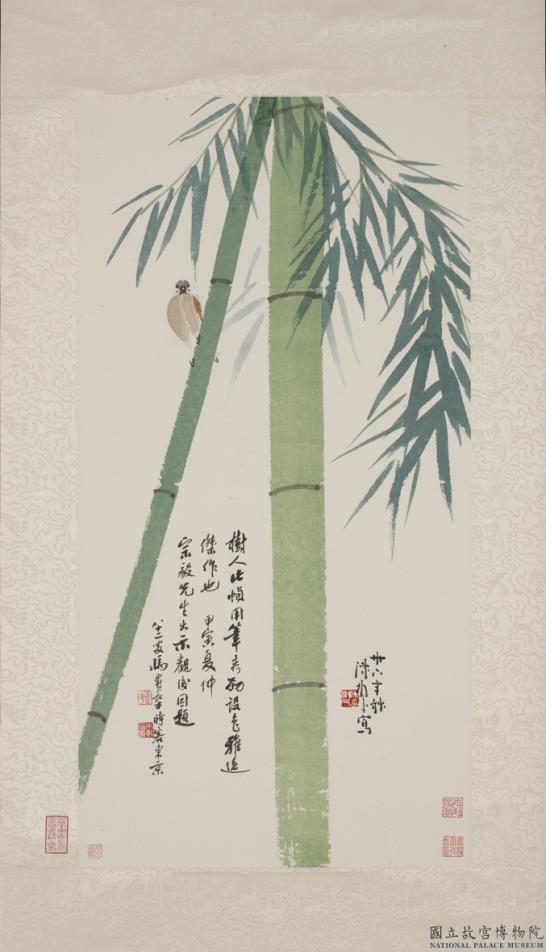 卅六年秋
陳樹人寫
樹人此幀用筆秀勁設色雅逸
傑作也 甲寅夏仲
宗毅先生出示觀後因題
八十二叟馬壽華時客東京
國立故宮博物院
NATIONAL PALACE MUSEUM